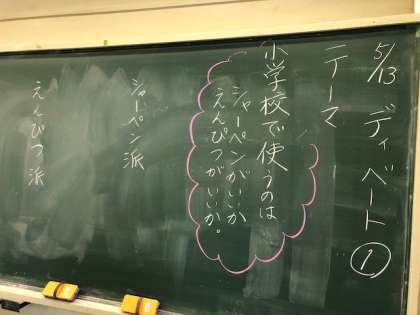 5/13 ディベート①
テーマ
小学校で使うのは
シャーペンがいいか
えんぴつがいいか。
シャーペン派
えんぴつ派